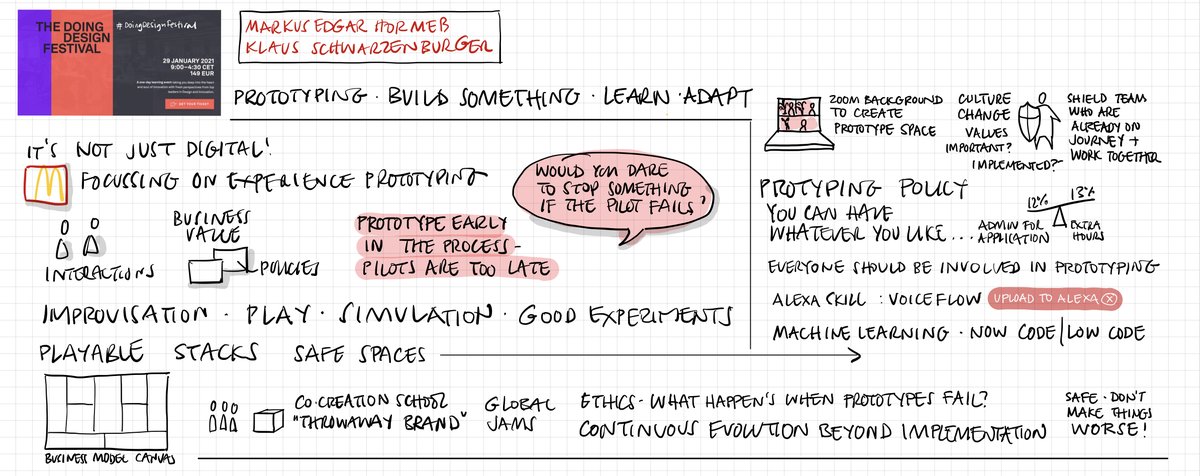 THE DOING
DESIGN
FESTIVAL
#doingDesignfestival
29 JANUARY 2021
9:00–4:30 CET
149 EUR
GET YOUR TICKET
MARKUS EDGAR HORMEß
KLAUS SCHWARZENBURGER
PROTOTYPING · BUILD SOMETHING · LEARN · ADAPT
IT'S NOT JUST DIGITAL!
M FOCUSSING ON EXPERIENCE PROTOTYPING
INTERACTIONS
BUSINESS
VALUE
POLICIES
PROTOTYPE EARLY
IN THE PROCESS -
PILOTS ARE TOO LATE
WOULD YOU DARE
TO STOP SOMETHING
IF THE PILOT FAILS?
IMPROVISATION · PLAY · SIMULATION · GOOD EXPERIMENTS
PLAYABLE STACKS SAFE SPACES
BUSINESS MODEL CANVAS
CO-CREATION SCHOOL
"THROWAWAY BRAND"
GLOBAL
JAMS
ETHICS - WHAT HAPPEN'S WHEN PROTOTYPES FAIL?
CONTINUOUS EVOLUTION BEYOND IMPLEMENTATION
SAFE · DON'T
MAKE THINGS
WORSE!
ZOOM BACKGROUND
TO CREATE
PROTOTYPE SPACE
CULTURE
CHANGE
VALUES
IMPORTANT?
IMPLEMENTED?
SHIELD TEAM
WHO ARE
ALREADY ON
JOURNEY +
WORK TOGETHER
PROTYPING POLICY
YOU CAN HAVE
WHATEVER YOU LIKE...
12% 13%
ADMIN FOR
APPLICATION
EXTRA
HOURS
EVERYONE SHOULD BE INVOLVED IN PROTOTYPING
ALEXA SKILL : VOICEFLOW UPLOAD TO ALEXA
MACHINE LEARNING · NOW CODE | LOW CODE